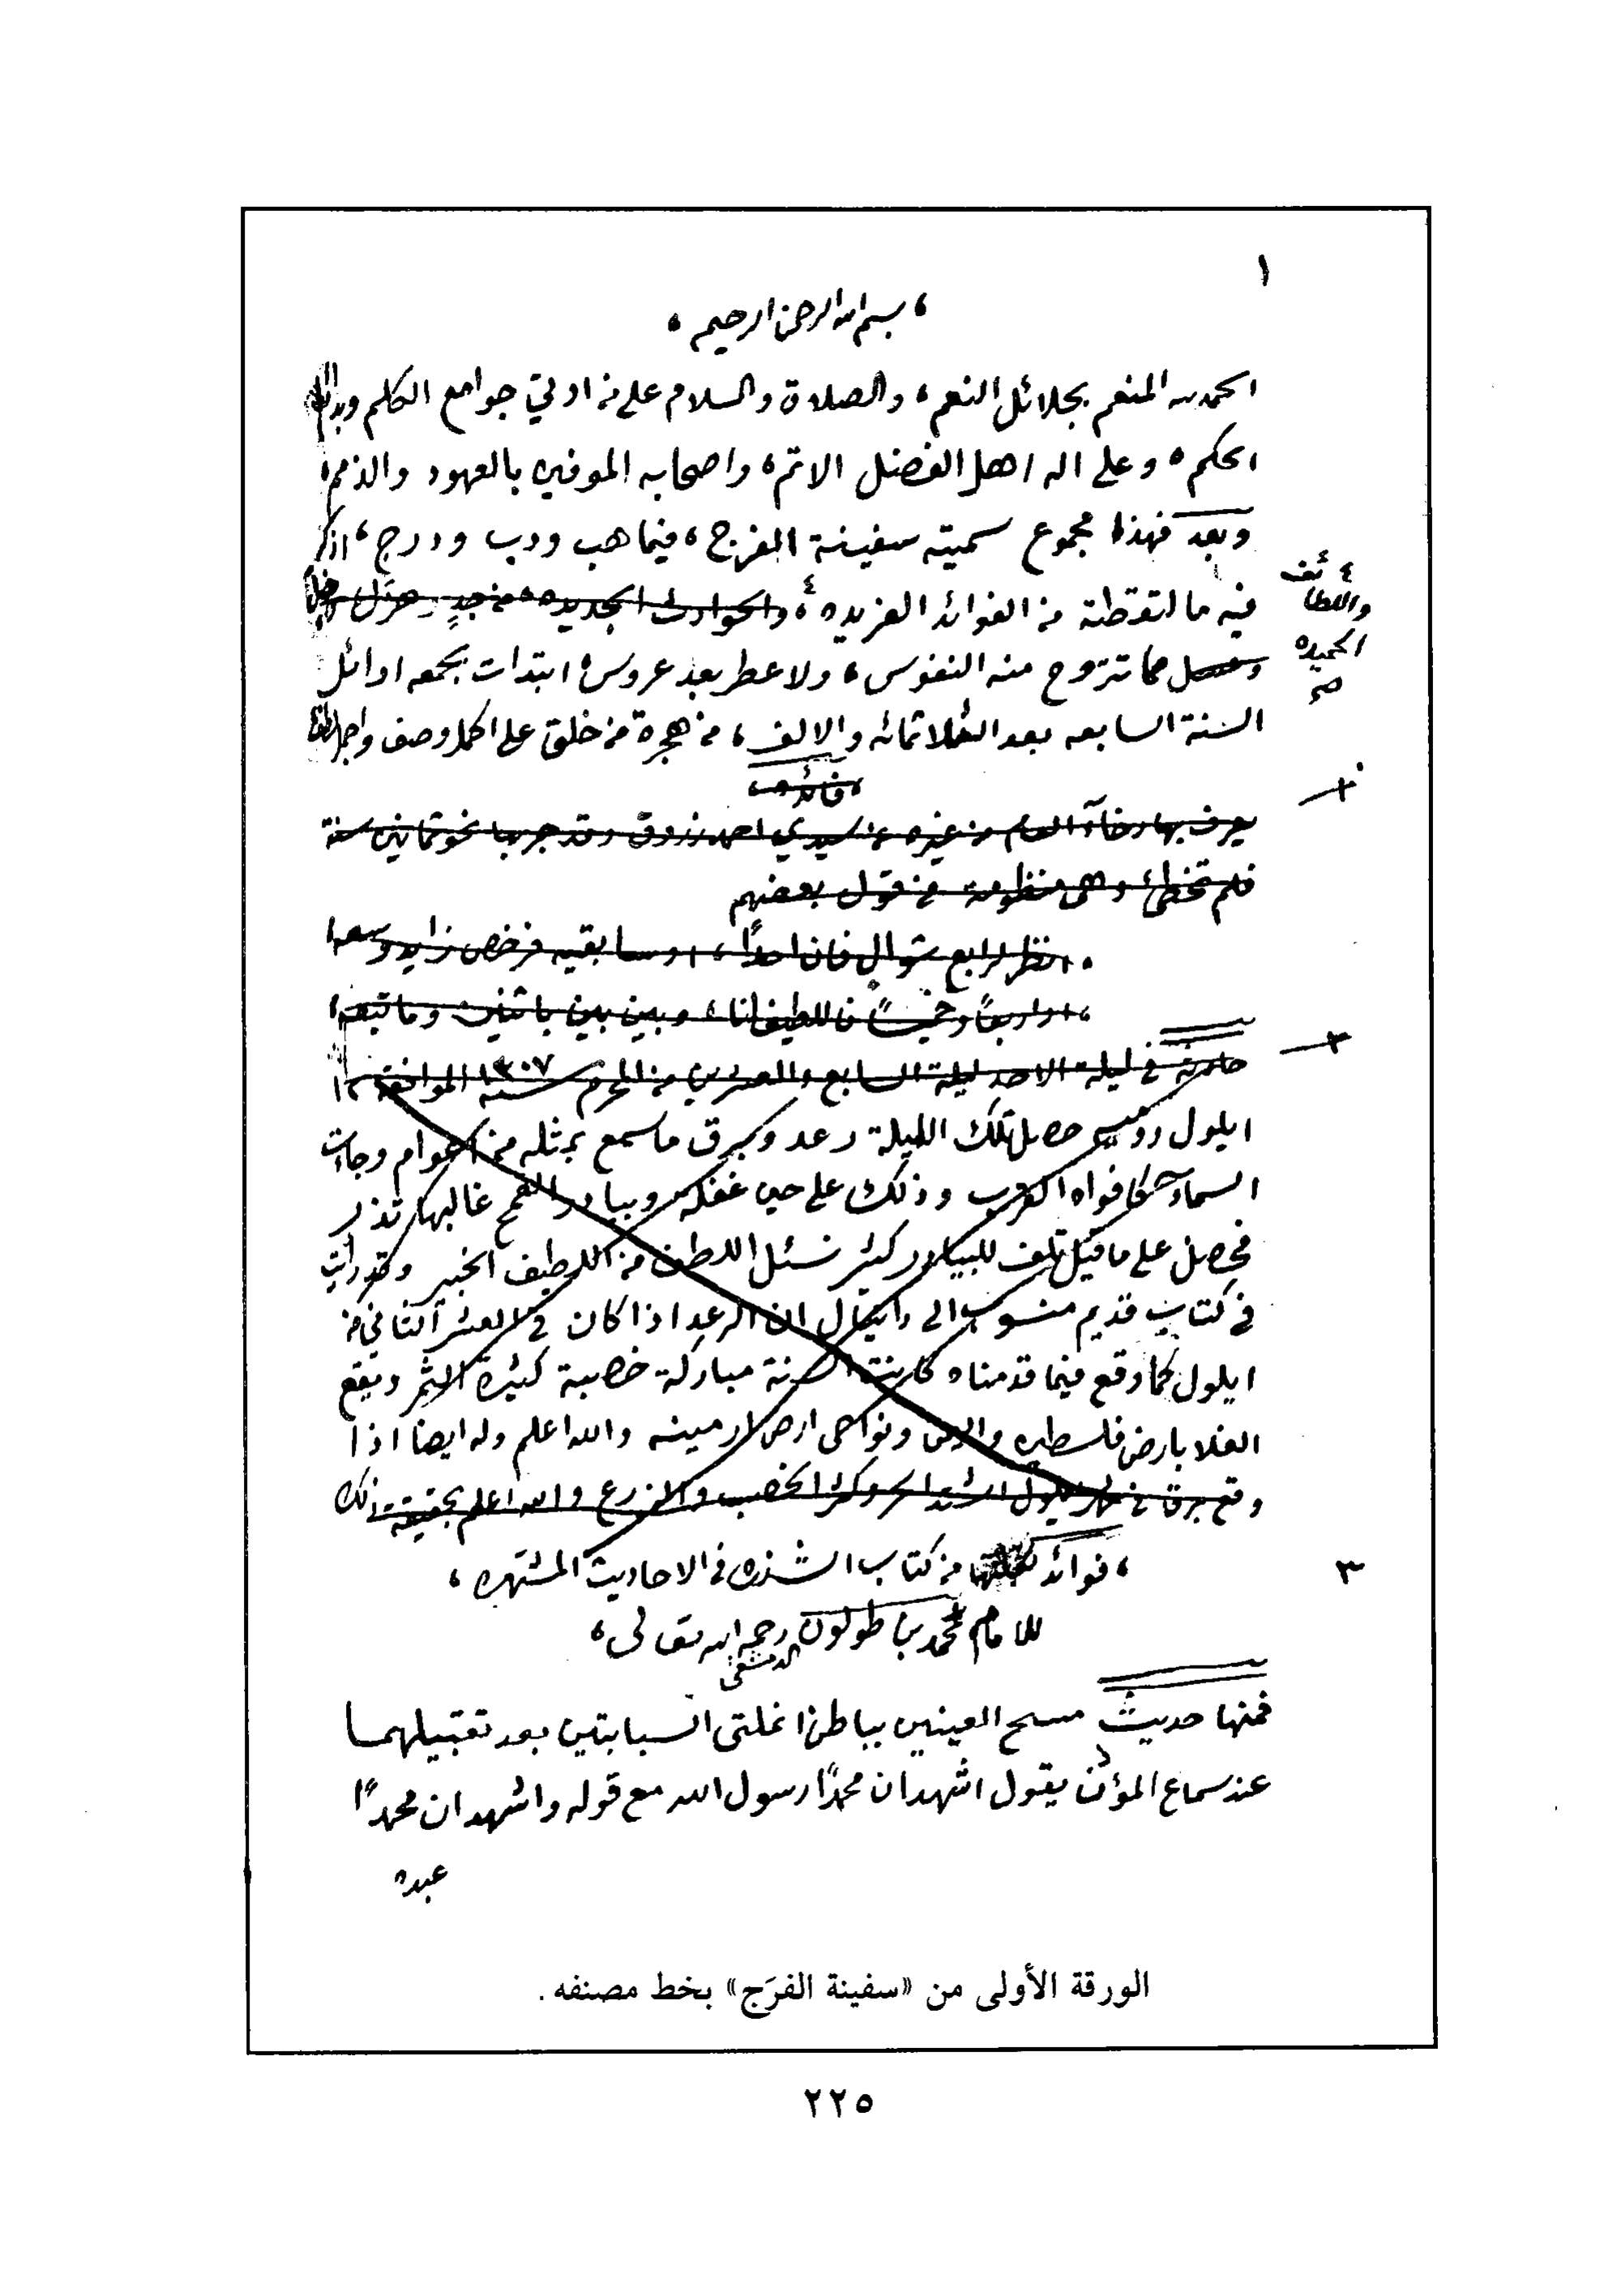 ١
، بسم الله الرحمن الرحيم ،
الحمد لله المنعم بجلائل النعم ، والصلاة والسلام على من اوتي جوامع الكلم وبدائع
الحكم ، وعلى اله اهل الفضل الاتم ، واصحابه الموفين بالعهود والذمم ،
وبعد فهذا مجموع سميته سفينة الفرج ، فيما هب ودب ودرج ، اذكر
فيه ما التقطته من الفوائد الفريده ، والحوادث الجديده ، من جدٍ وهزل
واللطائف
الحميده
صح
مما تتروح منه النفوس ، ولا عطر بعد عروس ، ابتدات بجمعه اوائل
السنة السابعه بعد الثلاثمائه والالف ، من هجرة من خلق على اكمل وصف
، فائده ،
يعرف بها رخآء العام من غيره عن سيدي احمد زروق وقد جربها نحو ثمانين سنة
فلم تخطئ وهي منظومة من قول بعضهم
، انظر لرابع شوال فان احدًا ، او سابقيه فرخص زايد وسعا
، او اربعًا وخميسًا فاللطيف لنا ، وبين بين باثنين وما تبعا
حادثة في ليلة الاحد ليلة السابع والعشرين من المحرم سنه ١٣٠٧ الموافقة
ايلول حصل تلك الليلة رعد وبرق ما سمع بمثله من اعوام وجاءت
السماء كافواه القرب وذلك على حين غفلة وبيادر القمح غالبها
فحصل على ما قيل تلف للبيادر كثير نسئل اللطف من اللطيف الخبير وقد رايت
في كتاب قديم منسوب الى دانيال ان الرعد اذا كان في العشر الثاني من
ايلول كما وقع فيما قدمناه كانت السنة مباركة خصبة كثيرة الثمر ويقع
الغلا بارض فلسطين ونواحي ارض ارمينه والله اعلم وله ايضا اذا
وقع برق في شهر ايلول اشتد الحر وكثر الخصب والزرع والله اعلم بحقيقة ذلك
٣
، فوائد من كتاب الشذره في الاحاديث المشتهره ،
للامام محمد بن طولون الدمشقي رحمه الله تعالى ،
فمنها حديث مسح العينين بباطن انملتي السبابتين بعد تقبيلهما
عند سماع المؤذن يقول اشهد ان محمدًا رسول الله مع قوله واشهد ان محمدًا
عبده
الورقة الأولى من «سفينة الفرَج» بخط مصنفه .
٢٢٥